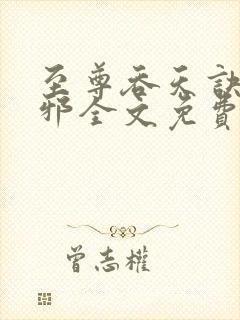 至尊吞天訣
邪全文免費
曾志權